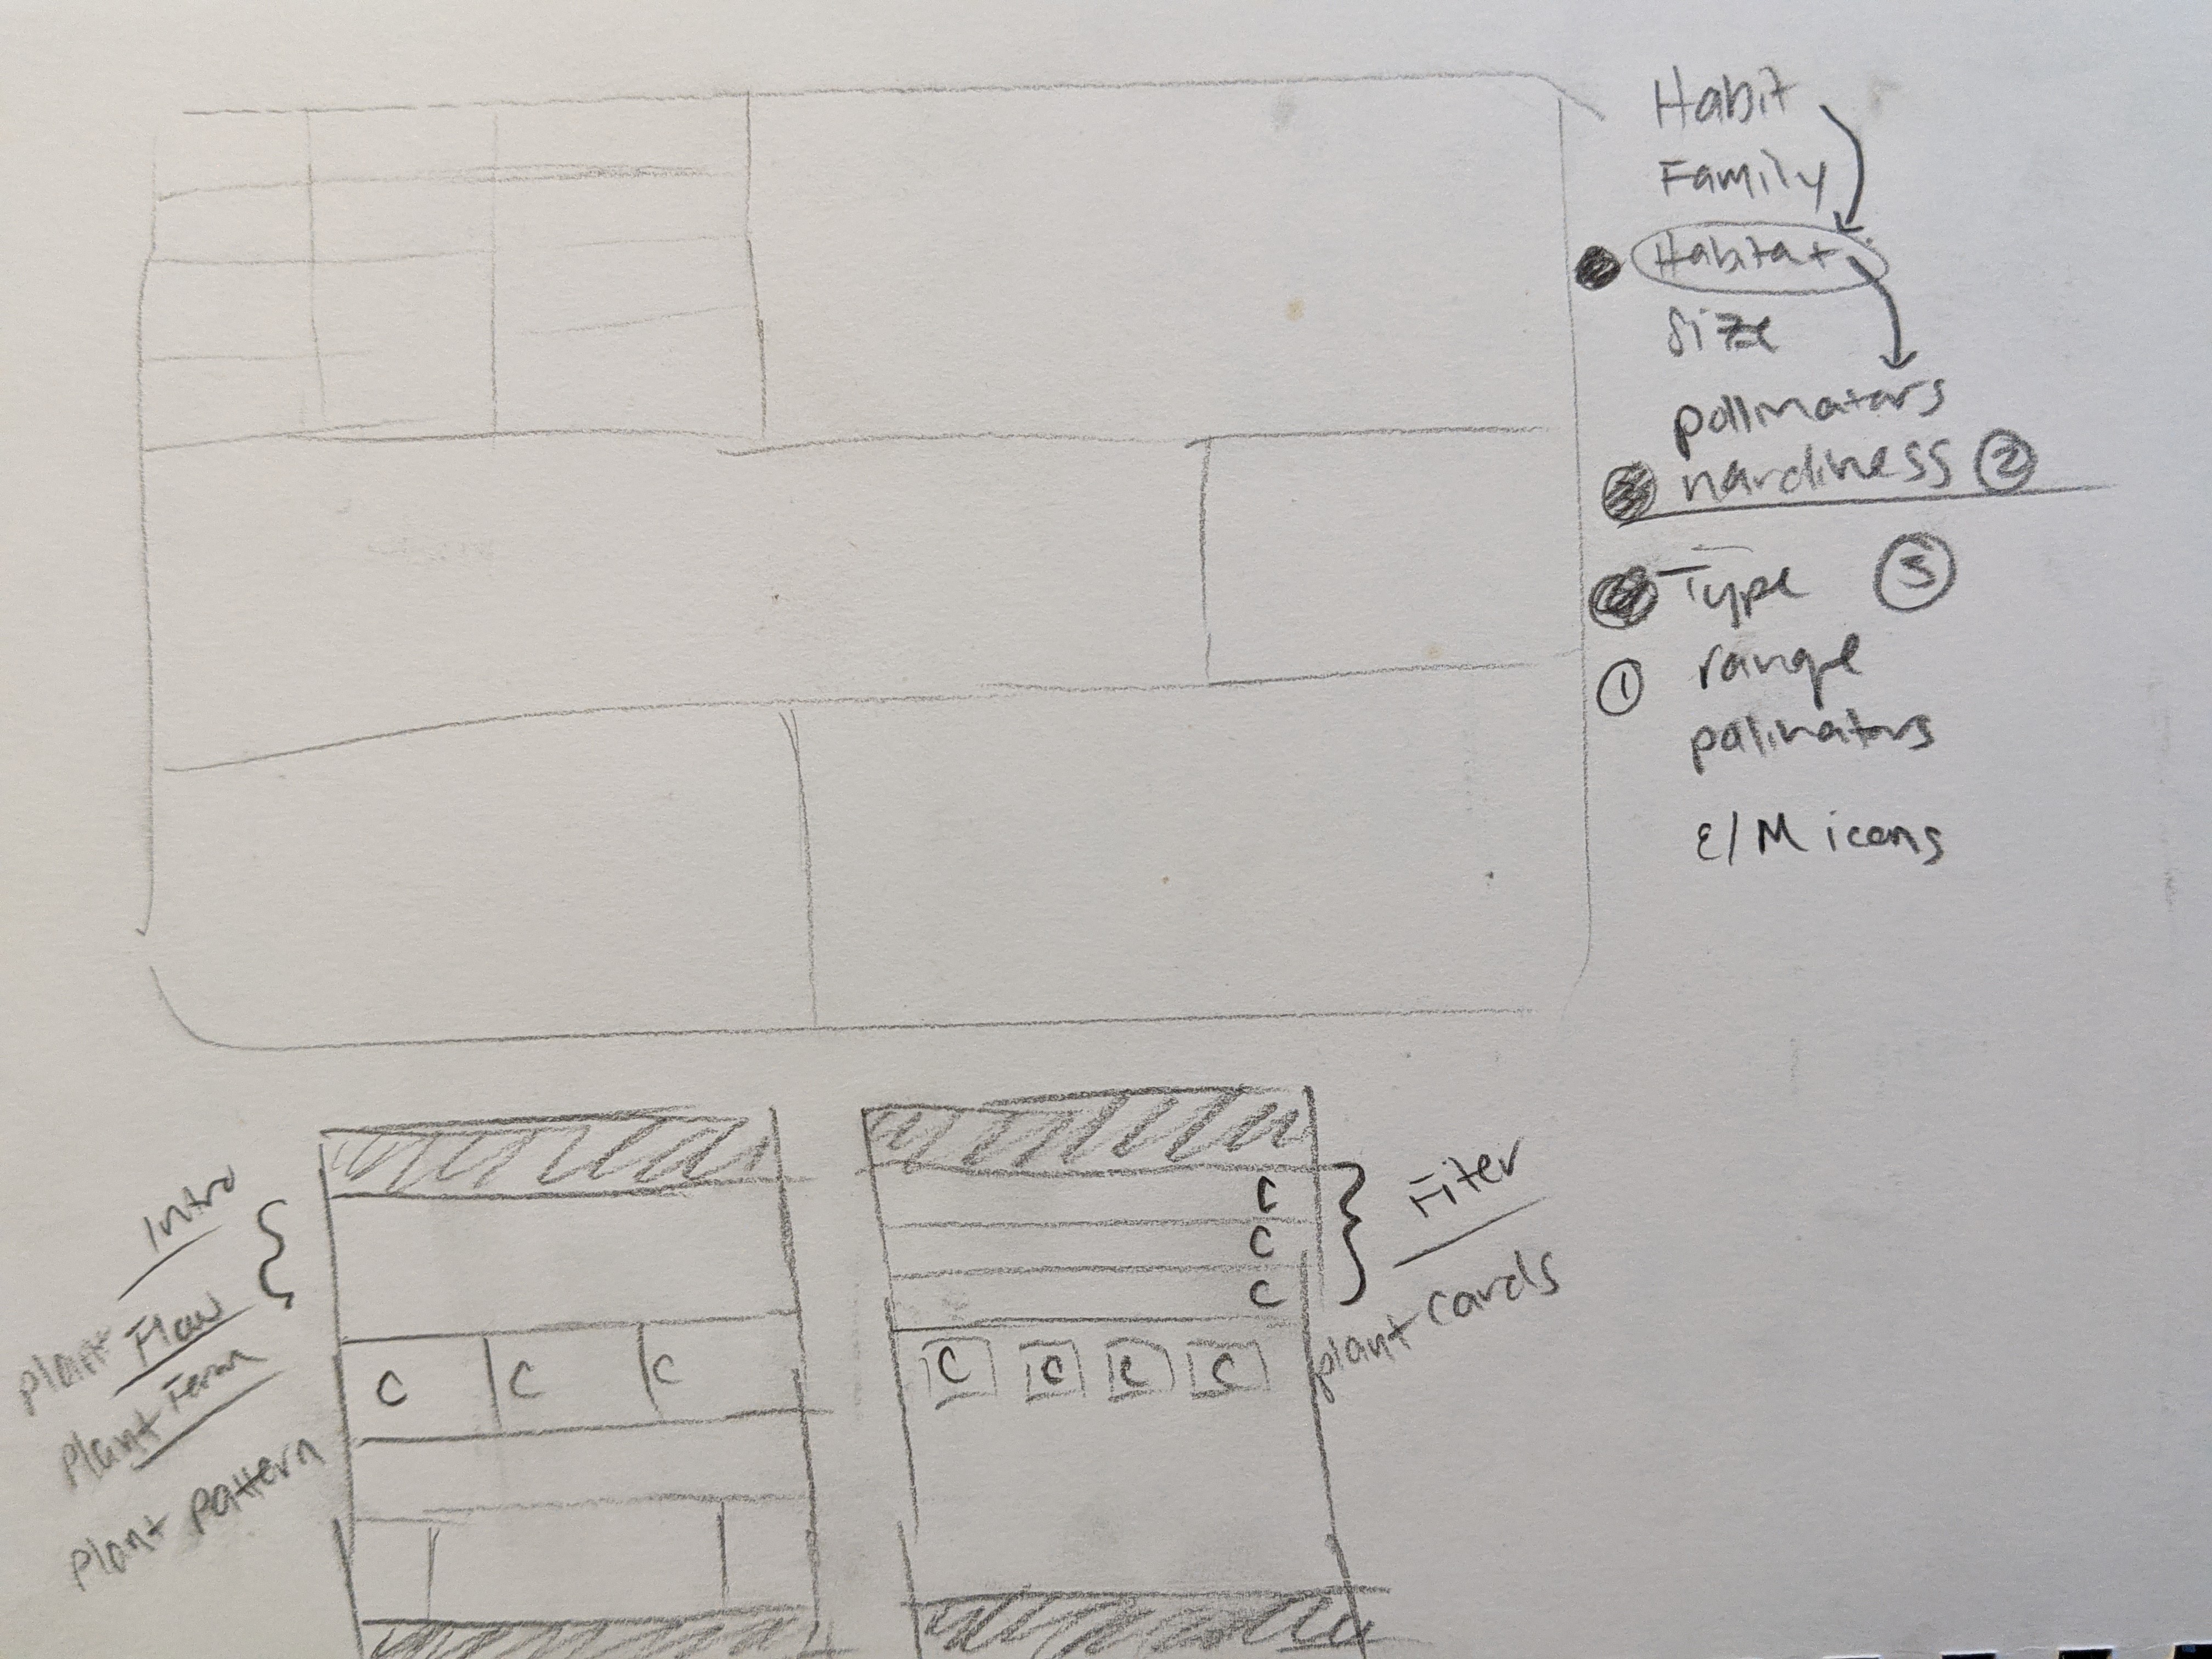 Habit
Family
Habitat
Size
pollinators
hardiness ②
Type ③
① range
pollinators
E/M icons
Intro
plant Flow
plant Form
plant pattern
C C C
C
C
C
Filter
plant cards
C C C C